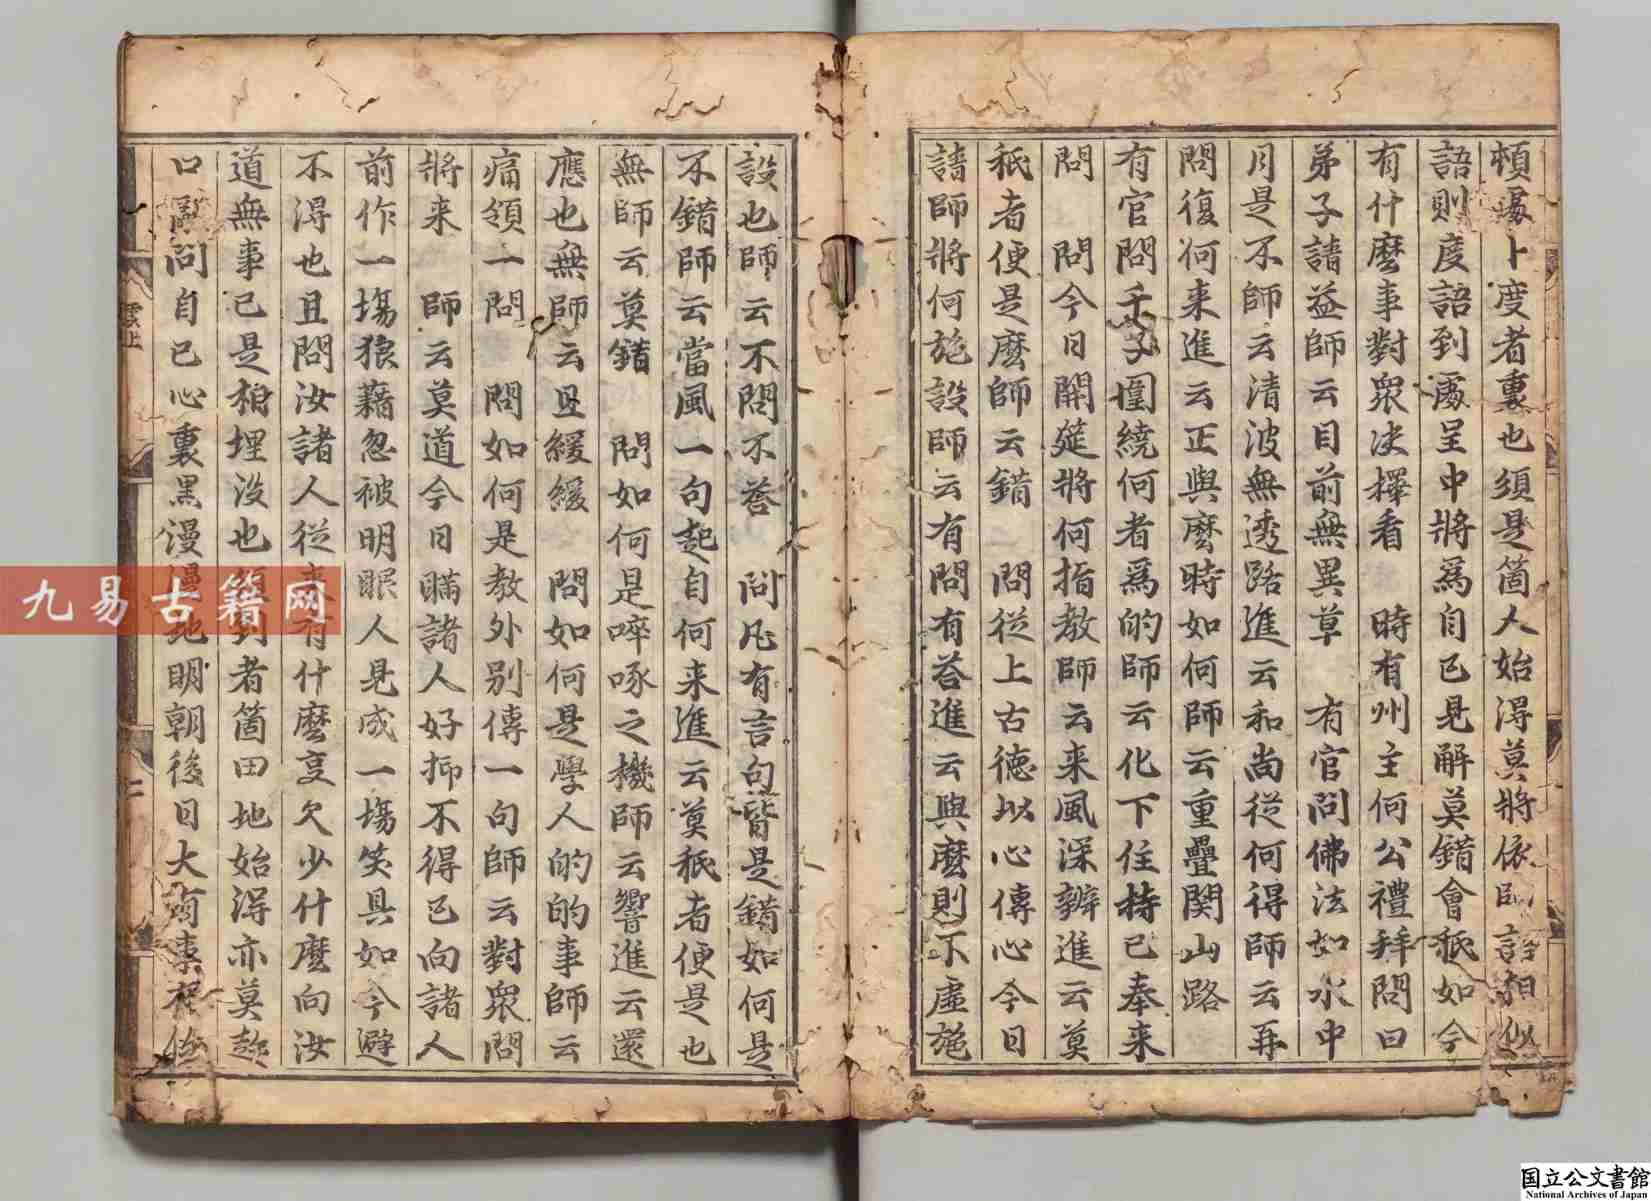 頓處卜度者裏也須是箇人始淂莫將依師語相似
語則度語到處呈中將爲自己見解莫錯會秖如今
有什麼事對衆决擇看 時有州主何公禮拜問曰
弟子請益師云目前無異草 有官問佛法如水中
月是不師云清波無透路進云和尚從何得師云再
問復何来進云正與麼時如何師云重疊関山路
有官問千子圍繞何者爲的師云化下住持已奉来
問 問今日開筵將何指教師云来風深辨進云莫
秖者便是麼師云錯 問從上古德以心傳心今日
請師將何施設師云有問有荅進云與麼則不虛施
設也師云不問不荅 問凡有言句皆是錯如何是
不錯師云當風一句起自何来進云莫秖者便是也
無師云莫錯 問如何是啐啄之機師云響進云還
應也無師云且緩緩 問如何是學人的的事師云
痛領一問 問如何是教外别傳一句師云對衆問
將来 師云莫道今日瞞諸人好抑不得已向諸人
前作一塲狼藉忽被明眼人見成一塲笑具如今避
不淂也且問汝諸人從来有什麼事欠少什麼向汝
道無事已是相埋没也須到者箇田地始淂亦莫趂
口亂問自己心裏黑漫漫地明朝後日大有事
雲上
九易古籍网
国立公文書館
National Archives of Japan